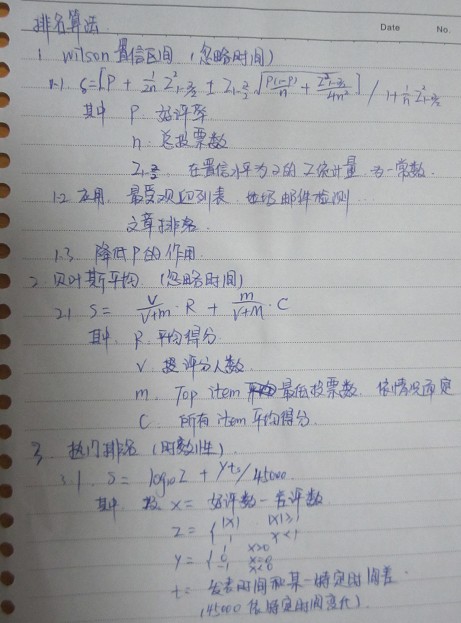 Date No.
排名算法
1. Wilson 置信区间 (忽略时间)
1.1. S=[P + 1/2n Z²₁₋α/₂ ± Z₁₋α/₂ √(P(1-P)/n + Z²₁₋α/₂/4n²)] / 1+1/n Z²₁₋α/₂
其中 P. 好评率
n. 总投票数
Z₁₋α/₂. 在置信水平为α的Z统计量 为一常数.
1.2 应用. 最受欢迎列表. 垃圾邮件检测
文章排名.
1.3. 降低P的作用.
2. 贝叶斯平均 (忽略时间)
2.1 S= V/V+m · R + m/V+m · C
其中. R. 平均得分.
V. 投评分人数
m. Top item 最低投票数. 依情况而定
C. 所有item平均得分.
3. 热门排名 (时效性)
3.1. S= log₁₀Z + yts/45000.
其中. x= 好评数-差评数
Z= { |x| |x|≥1
1 x<1
y= { 1 x>0
0 x=0
-1 x<0
t= 发表时间和某一特定时间差.
(45000 依特定时间变化).